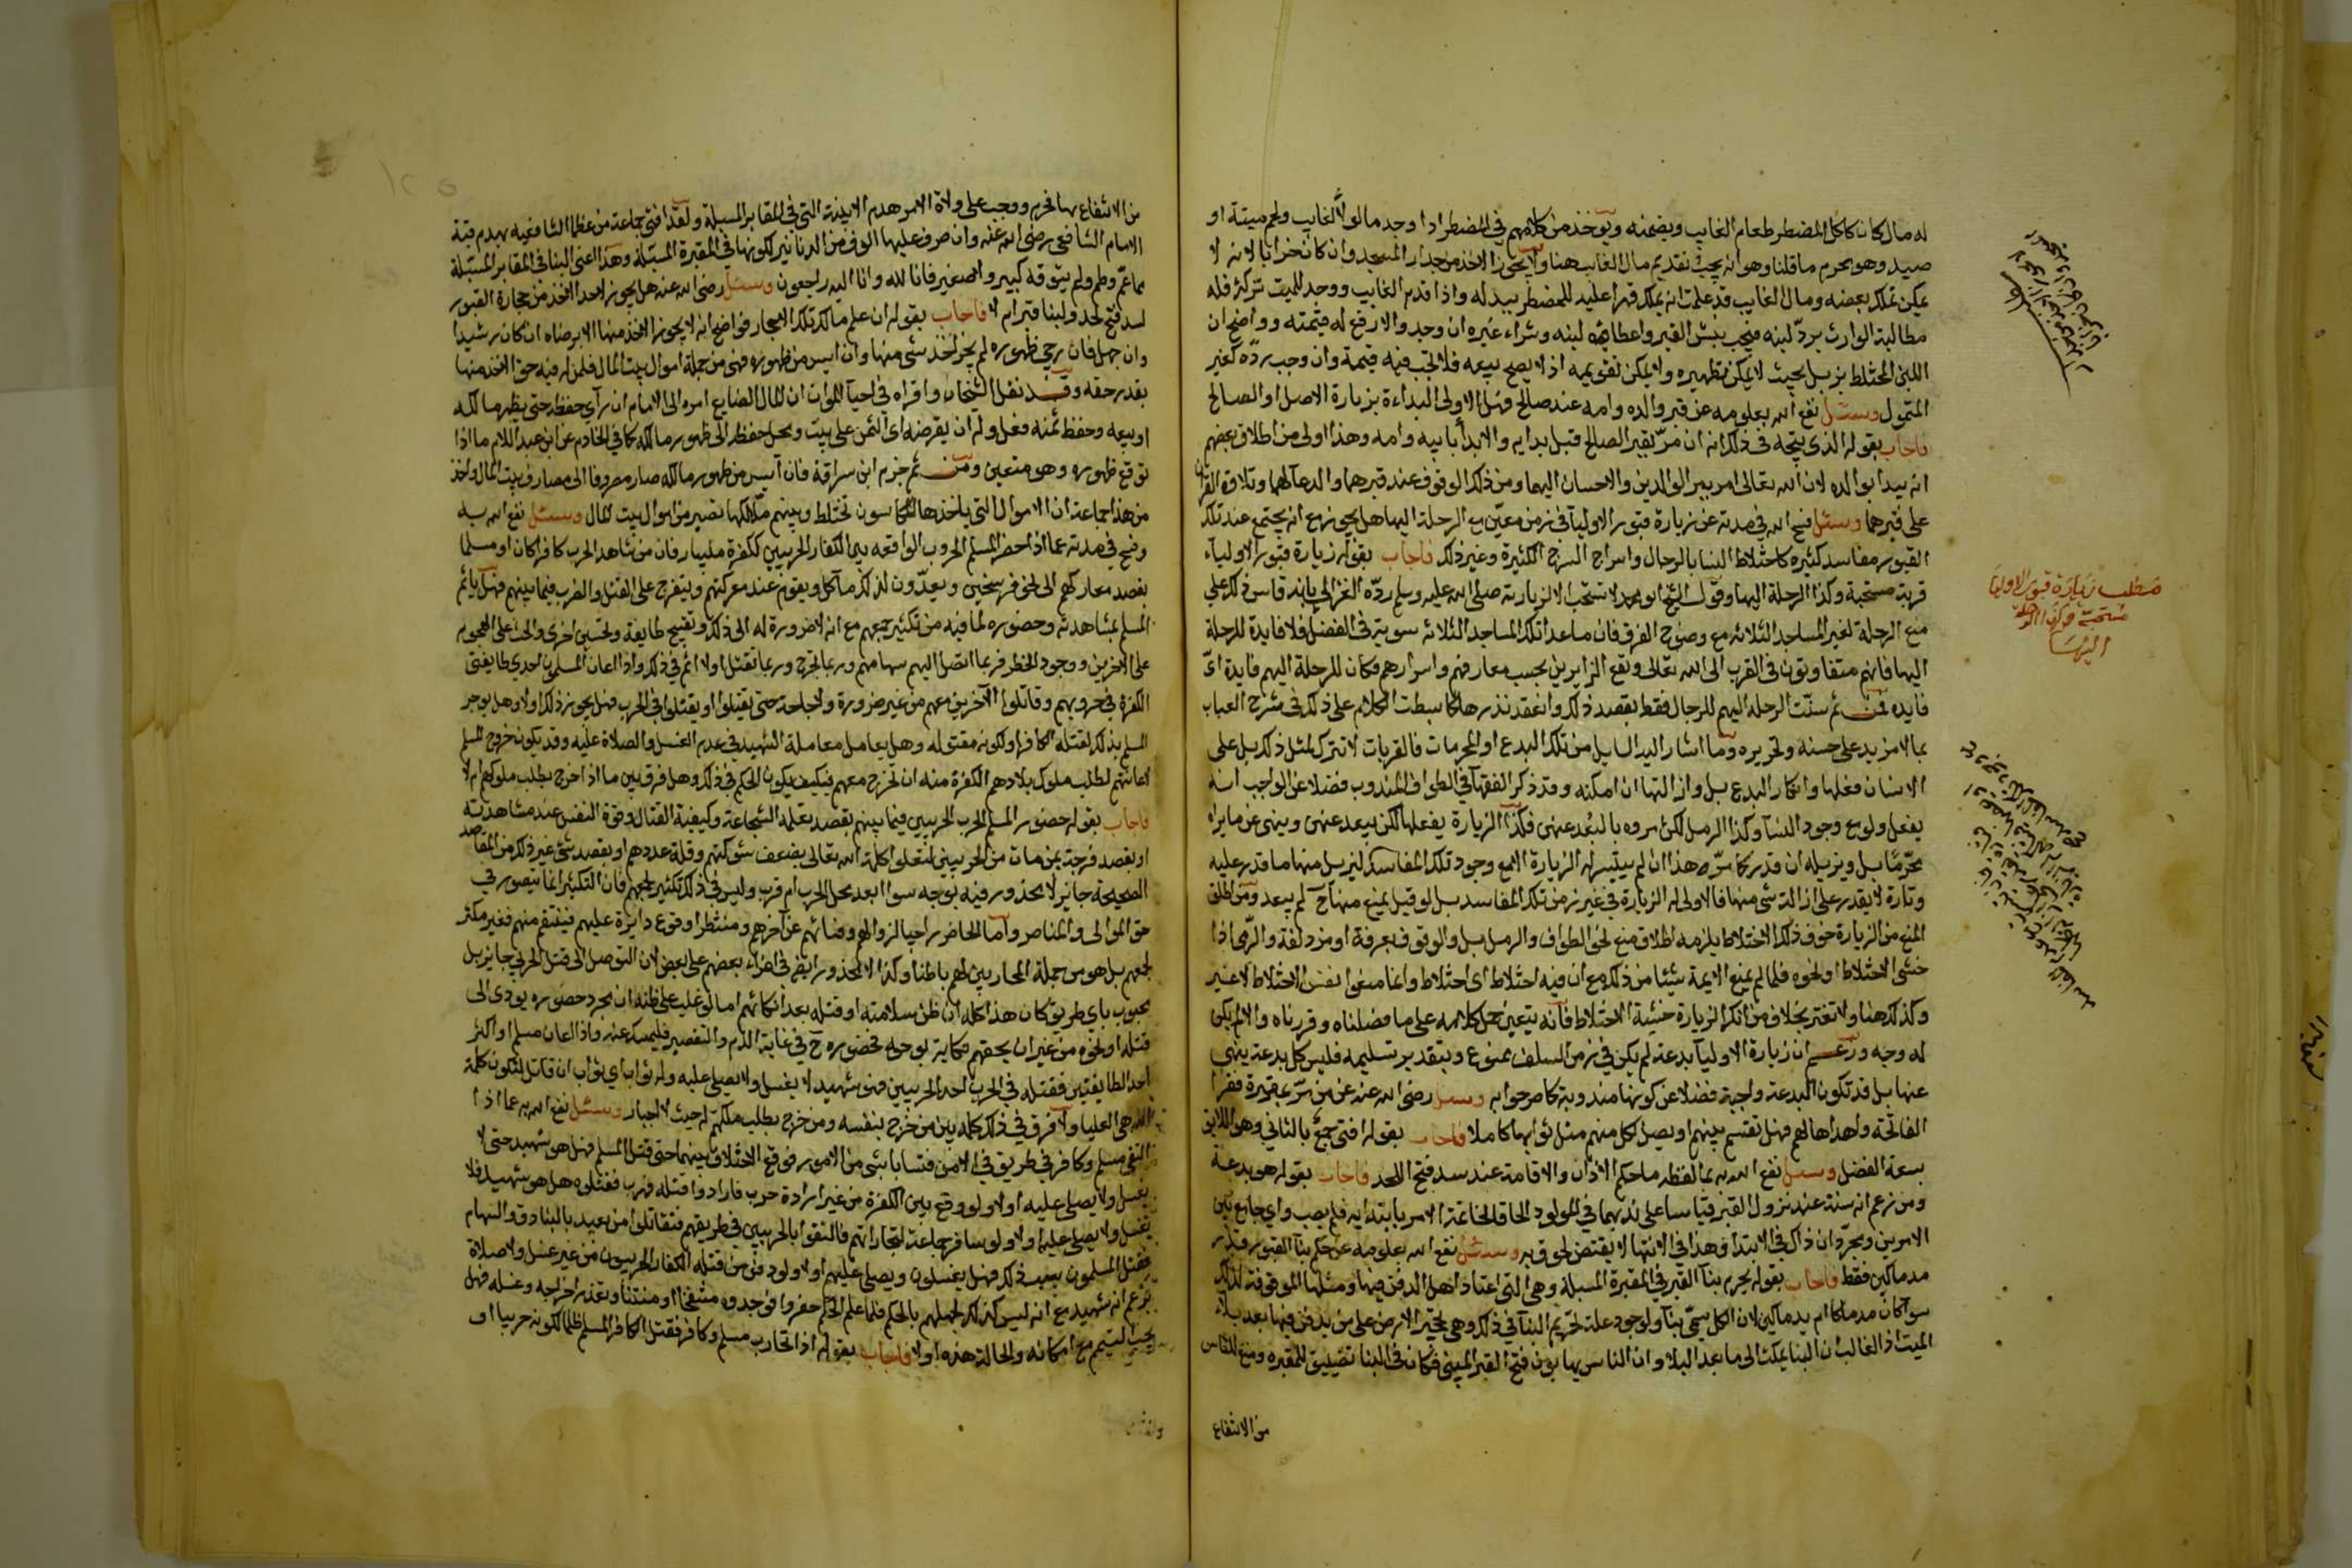 له مال كان كاكل المضطر طعام الغايب ويضمنه ويوخذ من كلامهم في المضطر اذا وجد مالولا لغايب ولحم ميتة او
صيد وهو محرم ما قلنا وهو انه يجب تقديم مال الغايب هنا ولا يجوز الاخذ من جدار المسجد وان كان خرابا لانه لا
يمكن تملك بعضه ومال الغايب قد علمت انه يملك قهرا عليه للمضطر ببدله واذا قدم الغايب ووجد للميت تركة فله
مطالبة الوارث برد لبنه فيجب نبش القبر واعطاؤه لبنه وشراء غيره ان وجد والا رفع له قيمته وواضح ان
اللبن المختلط بزبل بحيث لا يمكن تطهيره ولا يمكن تقويمه اذ لا يصح بيعه فلا تجب فيه قيمة وان وجب رده كغير
المتمول وسئل نفع الله بعلومه عن قبر والده وامه عند صالح فهل الاولى البداءة بزيارة الاصل او الصالح
فاجاب بقوله الذي يتجه في ذلك انه ان مر بقبر الصالح قبل بدا به والا بدأ بابيه وامه وهذا اولى من اطلاق بعضهم
انه يبدأ بوالده لان الله تعالى امر ببر الوالدين والاحسان اليهما ومن ذلك الوقوف عند قبرهما والدعآ لهما وتلاوة القران
على قبرهما وسئل فسح الله في مدته عن زيارة قبور الاوليآ في زمن معين مع الرحلة اليها هل يجوز مع انه يجتمع عند تلك
القبور مفاسد كثيرة كاختلاط النسا بالرجال واسراج السرج الكثيرة وغير ذلك فاجاب بقوله زيارة قبور الاوليآء
قربة مستحبة وكذا الرحلة اليها وقول الشيخ ابو محمد لا تستحب الا لزيارته صلى الله عليه وسلم رده الغزالي بانه قاس ذلك على
منع الرحلة لغير المساجد الثلاثه مع وضوح الفرق فان ماعدا تلك المساجد الثلاثه مستوية في الفضل فلا فايدة للرحلة
اليها فانهم متفاوتون في القرب الى الله تعالى ونفع الزايرين بحسب معارفهم واسرارهم فكان للرحلة اليهم فايدة اي
فايده فمن ثم سنت الرحله اليهم للرجال فقط بقصد ذلك وانعقد نذرها كما بسطت الكلام على ذلك في شرح العباب
بما لا مزيد على حسنه وتحريره وما اشار اليه السايل من تلك البدع او المحرمات فالقربات لا تترك لمثل ذلك بل على
الانسان فعلها وانكار البدع بل وازالتها ان امكنه وقد ذكر الفقهآ في الطواف المندوب فضلا عن الواجب انه
يفعل ولو مع وجود النسآ وكذا الرمل لكن امروه بالبعد عنهن فكذا الزيارة يفعلها لكن يبعد عنهن وينهى عن ما يراه
محرما بل ويزيله ان قدر كما مر هذا ان لم يتيسر له الزيارة الا مع وجود تلك المفاسد ليزيل منها ما قدر عليه
وتارة لا يقدر على ازالة شي منها فالاولى له الزيارة في غير زمن تلك المفاسد بل لو قيل يمنع منها ح لم يبعد ومن اطلق
المنع من الزيارة خوف ذلك الاختلاط يلزمه اطلاق منع نحو الطواف والرمل بل والوقوف بعرفة او مزدلفة والرمي اذا
خشي الاختلاط او نحوه فلما لم يمنع الايمة شيئا من ذلك مع ان فيه اختلاط اي اختلاط وانما منعوا نفس الاختلاط لا غير
وكذلك هنا ولا تغتر بخلاف من انكر الزيارة خشية الاختلاط فانه يتعين حمل كلامه على ما فصلناه وقررناه والا لم يكن
له وجه وزعم ان زيارة الاوليآ بدعة لم يكن في زمن السلف ممنوع وبتقدير تسليمه فليس كل بدعة ينهى
عنها بل قد تكون البدعة واجبة فضلا عن كونها مندوبة كما صرحوا به وسئل رضي الله عنه عن من مر بمقبرة فقرا
الفاتحة واهداها لهم فهل تقسم بينهم او يصل لكل منهم مثل ثوابها كاملا فاجاب بقوله افتى جمع بالثاني وهو اللايق
بسعة الفضل وسئل نفع الله به بما لفظه ما حكم الاذان والاقامة عند سد فتح اللحد فاجاب بقوله هو بدعة
ومن زعم انه سنة عند نزول القبر قياسا على ندبهما في المولود الحاقا لخاتمة الامر بابتدايه فلم يصب واي جامع بين
الامرين ومجرد ان ذاك في الابتدا وهذا في الانتها لا يقتضي لحوقه به وسئل نفع الله بعلومه عن حكم بنآ القبور قدر
مدماكين فقط فاجاب بقوله يحرم بنآ القبر في المقبرة المسبلة وهي التي اعتاد اهل البلد الدفن فيها ومثلها الموقوفة لذلك
سوا كان مدماكا ام يدماكين لان الكل يسمى بنآ ولوجود علة تحريم البنآ في ذلك وهي تحجير الارض على من يدفن فيها بعد بلاء
الميت اذ الغالب ان البنا يمكث الى ما بعد البلا وان الناس يهابون فتح القبر المبني فكان في البنا تضييق للمقبره ومنع للناس
من الانتفاع
مطلب زيارة قبور الاوليا
مستحبة وكذا الرحلة
اليها
من الانتفاع بها فحرم ووجب على ولاة الامر هدم الابنية التي في المقابر المسبلة ولقد افتى جماعة من عظما الشافعيه بهدم قبة
الامام الشافعي رضي الله عنه وان صرف عليها الوف من الدنانير لكونها في المقبرة المسبلة وهذا اعني البنا في المقابر المسبلة
مما عم وطم ولم يتوقه كبير ولا صغير فانا لله وانا اليه راجعون وسئل رضي الله عنه هل يجوز لاحد الاخذ من حجارة القبور
لسد فتح لحد ولبنا قبر ام لا فاجاب بقوله ان علم مالك تلك الاحجار فواضح انه لا يجوز الاخذ منها الا برضاه ان كان رشيدا
وان جهل فان رجي ظهوره لم يجز اخذ شي منها وان ايس من ظهوره فهي من جملة اموال بيت المال فلمن له فيه حق الاخذ منها
بقدر حقه وقد نقل الشيخان واقراه في احيآ الموات ان المال الضايع امره الى الامام ان رآى حفظه حتى يظهر مالكه
او بيعه وحفظ ثمنه فعل وله ان يقرضه اي الثمن على بيت ومحل حفظه الى ظهور مالكه كما في الخادم عن ابن عبد السلام ما اذا
توقع ظهوره وهو متعين ومن ثم جزم ابن سراقة فان آيس من ظهور مالكه صار مصروفا الى مصارف بيت المال واخذ
من هذا جماعة ان الاموال التي ياخذها المكاسون تختلط ويتهم ملاكها تصير من اموال بيت المال وسئل نفع الله به
وفسح في مدته عما اذا حضر المسلم الحروب الواقعه بين الكفار الحربيين ككفرة مليبار فان من شاهد الحرب كافرا كان او مسلما
يقصد معاركهم الى نحو فرسخين ويعدون لذلك مآكل ويقوم عند معركتهم ويتفرج على القتل والضرب فيما بينهم فهل ياثم
المسلم بمشاهدته وحضوره لما فيه من تكثير جمعهم مع انه لا ضرورة له الى ذلك وتقبيح طايفة وتحسين اخرى والحث على الهجوم
على الاخرين ووجود الخطر فربما اتصل اليهم سهامهم وربما تجرح وربما تقتل اولا اثم في ذلك واذا اعان المسلمون احدى طايفتي
الكفرة في حروبهم وقاتلوا الآخرين معهم من غير ضرورة ولا حاجة حتى يقتلوا او يقتلوا في الحرب فهل يجوز ذلك اولا وهل يوجر
المسلم بذلك لقتله الكافر او لكونه مقتولا له وهل يعامل معاملة الشهيد في عدم الغسل والصلاة عليه وقد تكون خروج المسلم
لاعانتهم لطلب ملوك بلادهم الكفرة منه ان تخرج معهم فكيف يكون الحكم في ذلك وهل فرق بين ما اذا خرج بطلب ملوكهم ام لا
فاجاب بقوله حضور المسلم الحرب الحربيين فيما بينهم بقصد تعلمه الشجاعة وكيفية القتال وقوة النفس عند مشاهدته
او بقصد فرحه بمن مات من الحربيين لتعلو كلمة الله تعالى بضعف شوكتهم وقلة عددهم او بقصد شي غير ذلك من المقاصد
الصحيحة جايز لا محذور فيه بوجه سوا ابعد محل الحرب ام قرب وليس في ذلك تكثير لجمعهم فان التكثير انما يتصور في
حق الموالي والمناصر واما الحاضر راجيا لزوالهم وفنائهم عن آخرهم ومنتظرا وقوع دايرة عليهم فينتقم منهم فغير مكثر
لجمعهم بل هو من جملة المحاربين لهم باطنا وكذا لا محذور ايضا في اغراء بعضهم على بعض لان التوصل الى قتل الحربي جايز بل
محبوب باي طريق كان هذا كله ان ظن سلامته او قتله بعد انكائهم اما لو غلب على ظنه ان مجرد حضوره يودي الى
قتله او نحوه من غير ان يلحقهم نكاية بوجه فحضوره ح في غاية الذم والتقصير فليمسك عنه واذا اعان مسلم او اكثر
احد الطايفتين فقتله في الحرب احد الحربيين فهو شهيد لا يغسل ولا يصلى عليه وله ثواب اي ثواب ان قاتل لتكون كلمة
الله هي العليا ولا فرق في ذلك كله بين من خرج بنفسه ومن خرج بطلب ملكهم له حيث لا اجبار وسئل نفع الله به عما اذا
التقى مسلم وكافر في طريق في الامن فتسابا بشي من الامور فوقع الاختلاف بينهما حتى قتل المسلم فهل هو شهيد حتى لا
يغسل ولا يصلى عليه اولا ولو وقع بين الكفرة من غير ارادة حرب فارادوا قتله فهرب فقتلوه هل هو شهيد فلا
يغسل ولا يصلى عليه اولا ولو سافر جماعة لتجاراتهم فالتقوا بالحربيين في طريقهم فتقاتلوا من بعيد بالبنادق والسهام
فقتل المسلمون بسبب ذلك فهل يغسلون ويصلى عليهم اولا ولو دفن من قتله الكفار الحربيون من غير غسل ولا صلاة
بزعم انه شهيد مع انه ليس كذلك لجهلهم بالحكم فلما علم الحكم حفروا فوجدوه متفسخا او منتنا وتعذر اخراجه وغسله فهل
يجب التيمم مع امكانه والحالة هذه اولا فاجاب بقوله اذا تحارب مسلم وكافر فقتل الكافر المسلم ظلما لكونه حربيا او